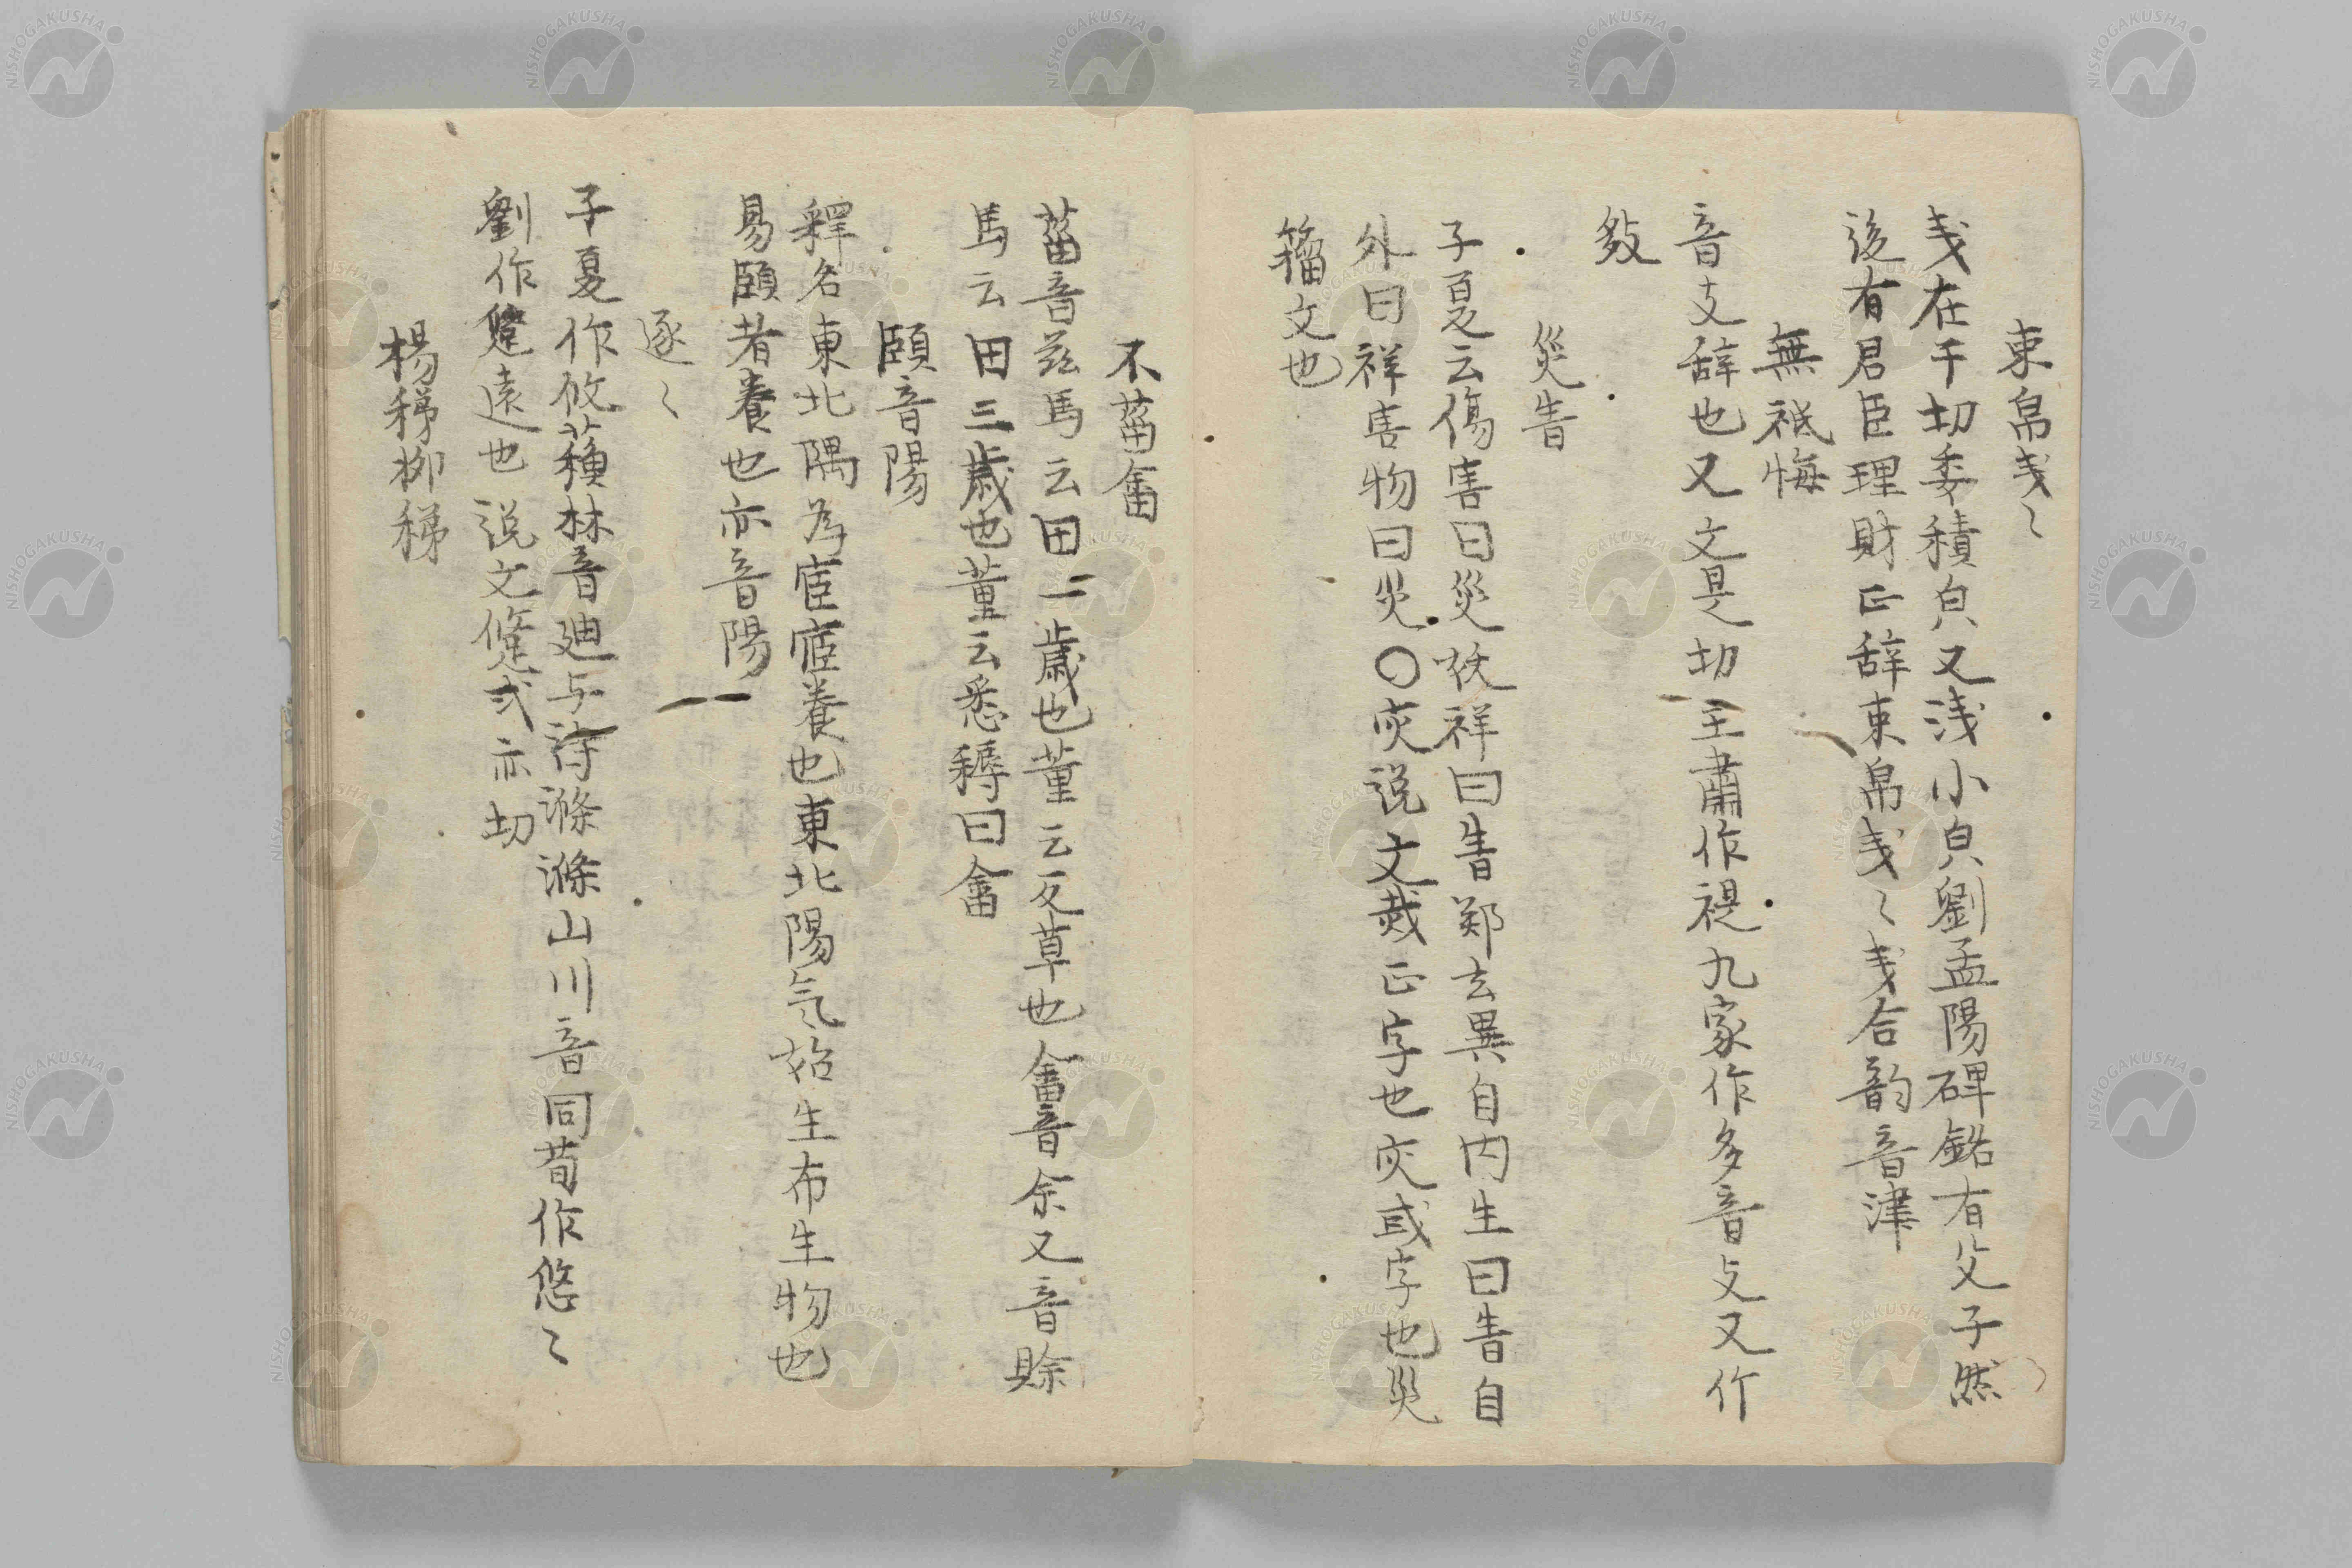 束帛戋〻
戋在千切委積皃又浅小皃劉孟陽碑銘有父子然
後有君臣理財正辞束帛戋〻戋合韵音津
無祗悔
音支辞也又文是切王肅作禔九家作多音支又作
敍
災眚
子夏云傷害曰災祅祥曰眚郑玄異自内生曰眚自
外曰祥害物曰災〇灾说文烖正字也灾或字也災
籀文也
不菑畬
菑音兹馬云田一歳也董云反草也畬音余又音賖
馬云田三歳也董云悉耨曰畬
頤音陽
釋名東北隅为宧宧養也東北陽气始生布生物也
易頤者養也亦音陽
逐〻
子夏作攸蘓林音廸与滌滌山川音同荀作悠〻
劉作跾遠也説文跾式亦切
楊稊柳稊
NISHOGAKUSHA